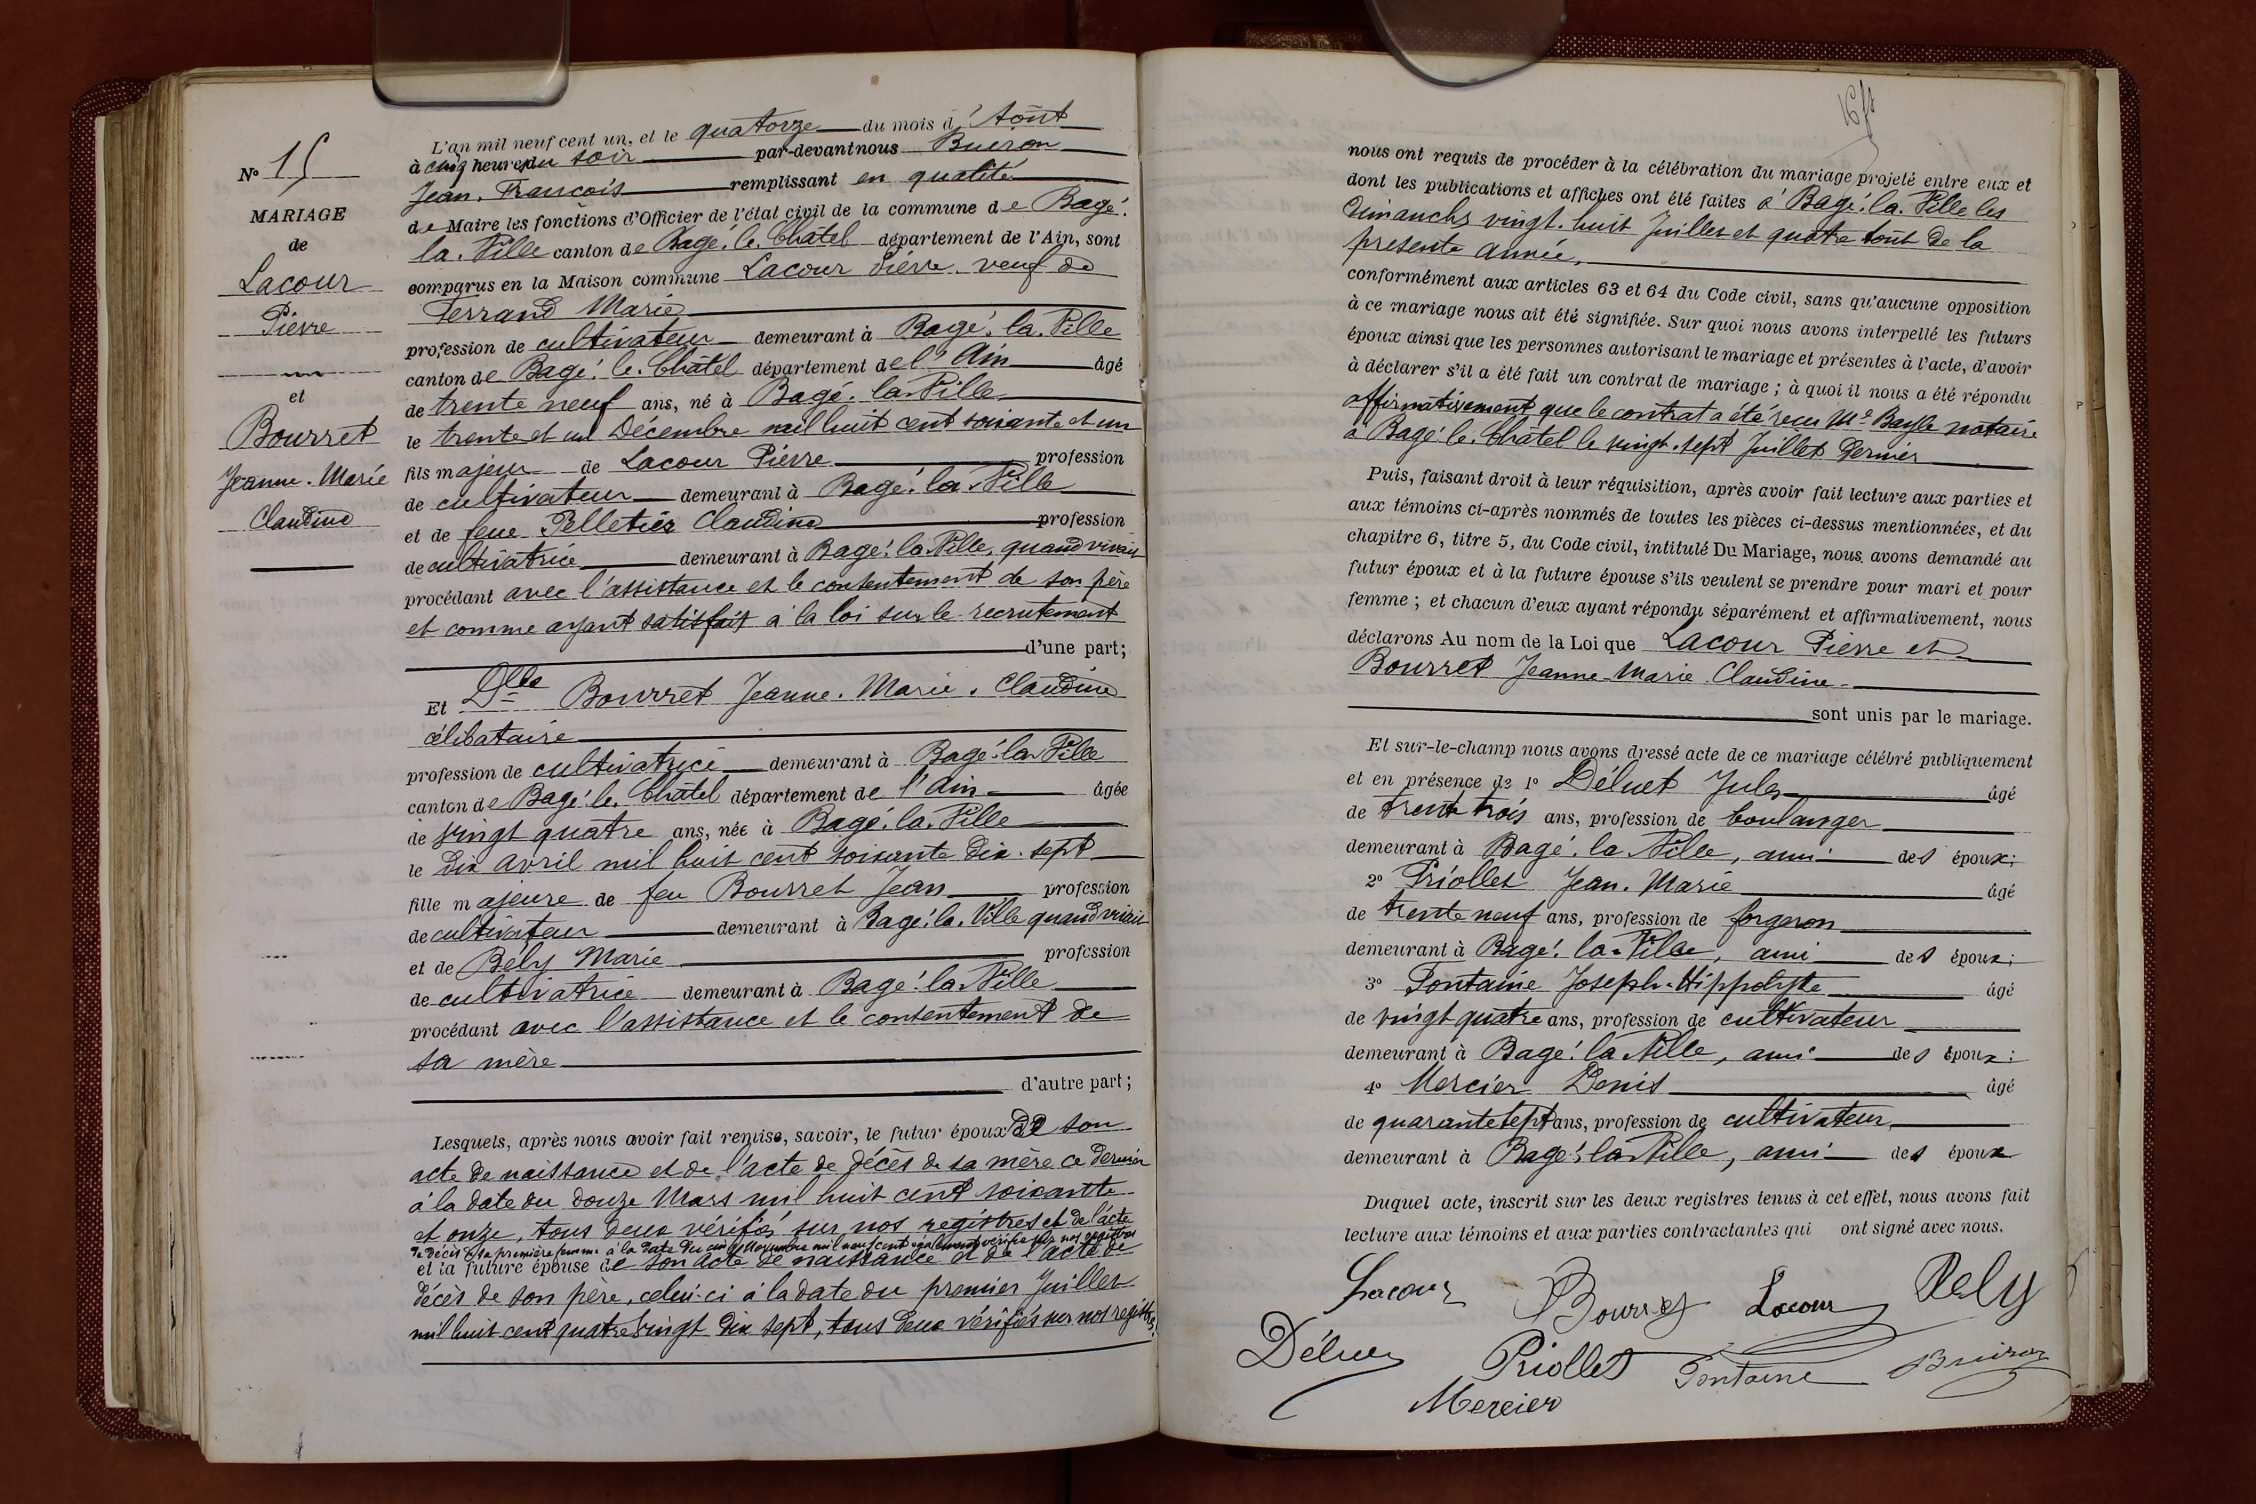 N° 15
MARIAGE
de
Lacour
Pierre
et
Bourret
Jeanne. Marie
Claudine
L'an mil neuf cent un, et le quatorze du mois d'Août
à cinq heures du soir par-devant nous Buiron
Jean. François remplissant en qualité
de Maire les fonctions d'Officier de l'état civil de la commune de Bagé.
la. Ville canton de Bagé. le. Châtel département de l'Ain, sont
comparus en la Maison commune Lacour Pierre veuf de
Ferrand Marie
profession de cultivateur demeurant à Bagé. la. Ville
canton de Bagé. le. Châtel département de l'Ain âgé
de trente neuf ans, né à Bagé. la. Ville
le trente et un Décembre mil huit cent soixante et un
fils majeur de Lacour Pierre profession
de cultivateur demeurant à Bagé. la. Ville
et de feue Pelletier Claudine profession
de cultivatrice demeurant à Bagé. la. Ville, quand vivait
procédant avec l'assistance et le contentement de son père
et comme ayant satisfait à la loi sur le recrutement
d'une part;
Et Dlle Bourret Jeanne. Marie. Claudine
célibataire
profession de cultivatrice demeurant à Bagé. la. Ville
canton de Bagé. le. Châtel département de l'Ain âgée
de vingt quatre ans, née à Bagé. la. Ville
le dix avril mil huit cent soixante dix. sept
fille majeure de feu Bourret Jean profession
de cultivateur demeurant à Bagé. la. Ville quand vivait
et de Bely Marie profession
de cultivatrice demeurant à Bagé. la. Ville
procédant avec l'assistance et le contentement de
sa mère
d'autre part;
Lesquels, après nous avoir fait remise, savoir, le futur époux de son
acte de naissance et de l'acte de décès de sa mère ce dernier
à la date du douze Mars mil huit cent soixante
et onze, tous deux vérifiés sur nos registres et de l'acte
de décès de sa première femme à la date du cinq Novembre mil neuf cent également vérifié sur nos registres
et la future épouse de son acte de naissance et de l'acte de
décès de son père, celui-ci à la date du premier Juillet
mil huit cent quatre vingt dix sept, tous deux vérifiés sur nos registres.
nous ont requis de procéder à la célébration du mariage projeté entre eux et
dont les publications et affiches ont été faites à Bagé. la. Ville les
Dimanches vingt. huit Juillet et quatre Août de la
présente année,
conformément aux articles 63 et 64 du Code civil, sans qu'aucune opposition
à ce mariage nous ait été signifiée. Sur quoi nous avons interpellé les futurs
époux ainsi que les personnes autorisant le mariage et présentes à l'acte, d'avoir
à déclarer s'il a été fait un contrat de mariage; à quoi il nous a été répondu
affirmativement que le contrat a été reçu Me Bayle notaire
à Bagé. le. Châtel le vingt. sept Juillet dernier
Puis, faisant droit à leur réquisition, après avoir fait lecture aux parties et
aux témoins ci-après nommés de toutes les pièces ci-dessus mentionnées, et du
chapitre 6, titre 5, du Code civil, intitulé Du Mariage, nous avons demandé au
futur époux et à la future épouse s'ils veulent se prendre pour mari et pour
femme; et chacun d'eux ayant répondu séparément et affirmativement, nous
déclarons Au nom de la Loi que Lacour Pierre et
Bourret Jeanne Marie Claudine
sont unis par le mariage.
Et sur-le-champ nous avons dressé acte de ce mariage célébré publiquement
et en présence de 1° Déluet Jules âgé
de trente trois ans, profession de boulanger
demeurant à Bagé. la Ville, ami des époux;
2° Priollet Jean. Marie âgé
de trente neuf ans, profession de forgeron
demeurant à Bagé. la. Ville, ami des époux;
3° Fontaine Joseph-Hippolyte âgé
de vingt quatre ans, profession de cultivateur
demeurant à Bagé. la Ville, ami des époux;
4° Mercier Denis âgé
de quarante sept ans, profession de cultivateur
demeurant à Bagé. la. Ville, ami des époux
Duquel acte, inscrit sur les deux registres tenus à cet effet, nous avons fait
lecture aux témoins et aux parties contractantes qui ont signé avec nous.
Lacour Bourret Lacour Bely
Déluet Priollet Fontaine Buiron
Mercier